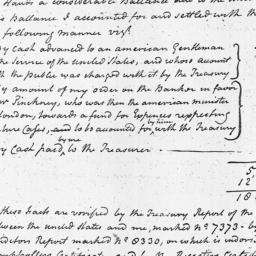 Hands a considerable Ballance and to the
is ballance I accounted for and settled with th
following manner viz.
By cash advanced to an american Gentleman
the Service of the United States, and whose account
th the public was charged with it by the Treasury
By amount of my order on the Banker in favor
Mr Pinckney, who was then the american minister
London, towards a fund for Expences respecting
pture Cases, and to be accounted for, by him with the Treasury
By Cash paid, by me to the Treasurer
5
12
18
These facts are verified by the Treasury Report of the
between the United States and me, marked No 7373 - by
Auditors Report marked No 8330, on which is indors